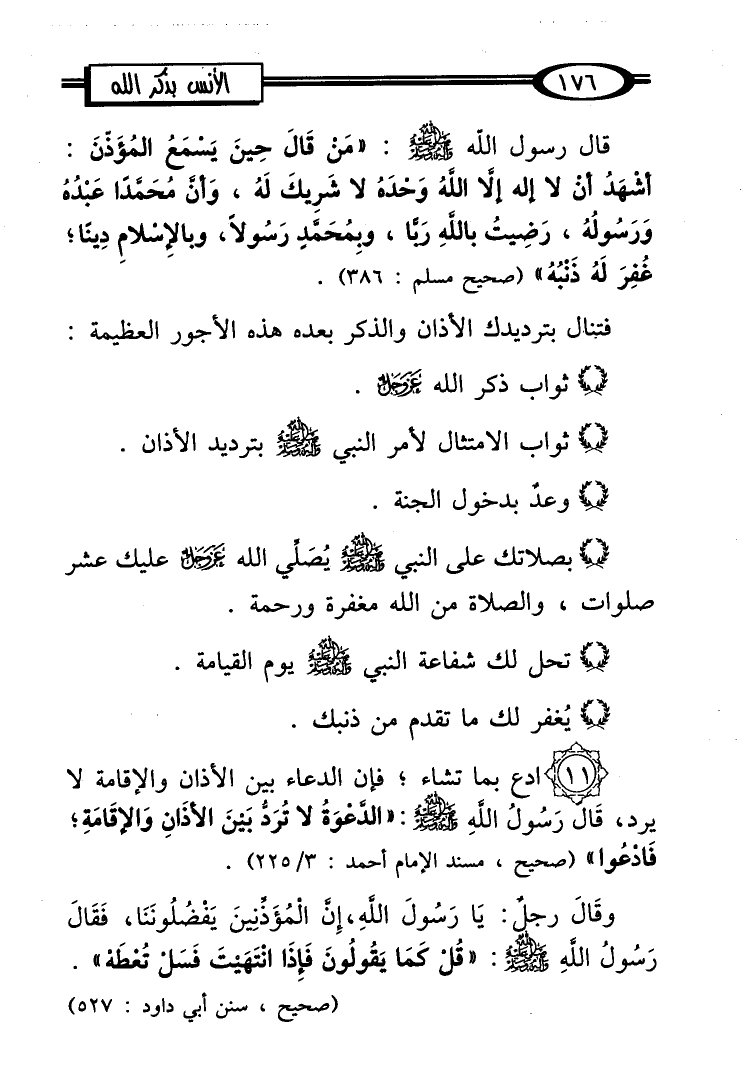 الأنس بذكر الله
١٧٦
قال رسول الله ﷺ : «مَنْ قَالَ حِينَ يَسْمَعُ المُؤَذّنَ :
أشْهَدُ أنْ لا إله إلَّا اللَّهُ وَحْدَهُ لا شَرِيكَ لَهُ ، وَأنَّ مُحَمَّدًا عَبْدُهُ
وَرَسُولُهُ ، رَضِيتُ باللَّهِ رَبًّا ، وبِمُحَمَّدٍ رَسُولاً، وبالإسْلامِ دِينًا؛
غُفِرَ لَهُ ذَنْبُهُ» (صحيح مسلم : ٣٨٦) .
فتنال بترديدك الأذان والذكر بعده هذه الأجور العظيمة :
ثواب ذكر الله عَزَّوَجَلَّ .
ثواب الامتثال لأمر النبي ﷺ بترديد الأذان .
وعدٌ بدخول الجنة .
بصلاتك على النبي ﷺ يُصَلِّي الله عَزَّوَجَلَّ عليك عشر
صلوات ، والصلاة من الله مغفرة ورحمة .
تحل لك شفاعة النبي ﷺ يوم القيامة .
يُغفر لك ما تقدم من ذنبك .
١١ ادع بما تشاء ؛ فإن الدعاء بين الأذان والإقامة لا
يرد، قَالَ رَسُولُ اللَّهِ ﷺ :«الدَّعْوَةُ لا تُرَدُّ بَيْنَ الأذَانِ وَالإقَامَةِ؛
فَادْعُوا» (صحيح ، مسند الإمام أحمد : ٢٢٥/٣) .
وقَالَ رجلٌ: يَا رَسُولَ اللَّهِ،إِنَّ الْمُؤَذِّنِينَ يَفْضُلُونَنَا، فَقَالَ
رَسُولُ اللَّهِ ﷺ : «قُلْ كَمَا يَقُولُونَ فَإِذَا انْتَهَيْتَ فَسَلْ تُعْطَهْ» .
(صحيح ، سنن أبي داود : ٥٢٧)